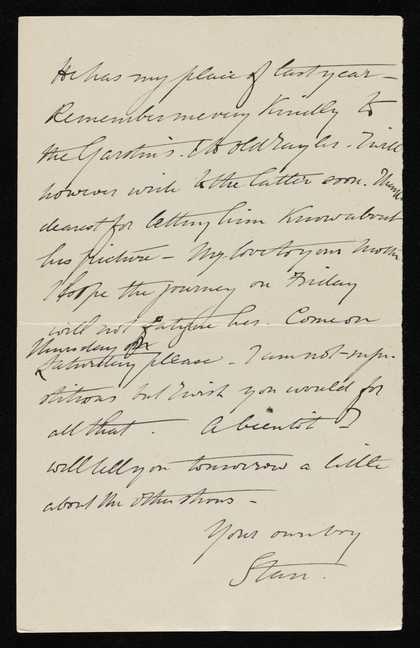 He has my place of last year —
Remember me very Kindly to
the Gardins. & to old Taylor. I will
however write to the latter soon. Thanks
dearest for letting him Know about
his picture — My love to your Mother
I hope the journey on Friday
will not fatigue her. Come on
Thursday or
Saturday please — I am not - super
stitious but I wish you would for
all that. A bientôt I
will tell you tomorrow a little
about the other shows —
Your own boy
Starr.